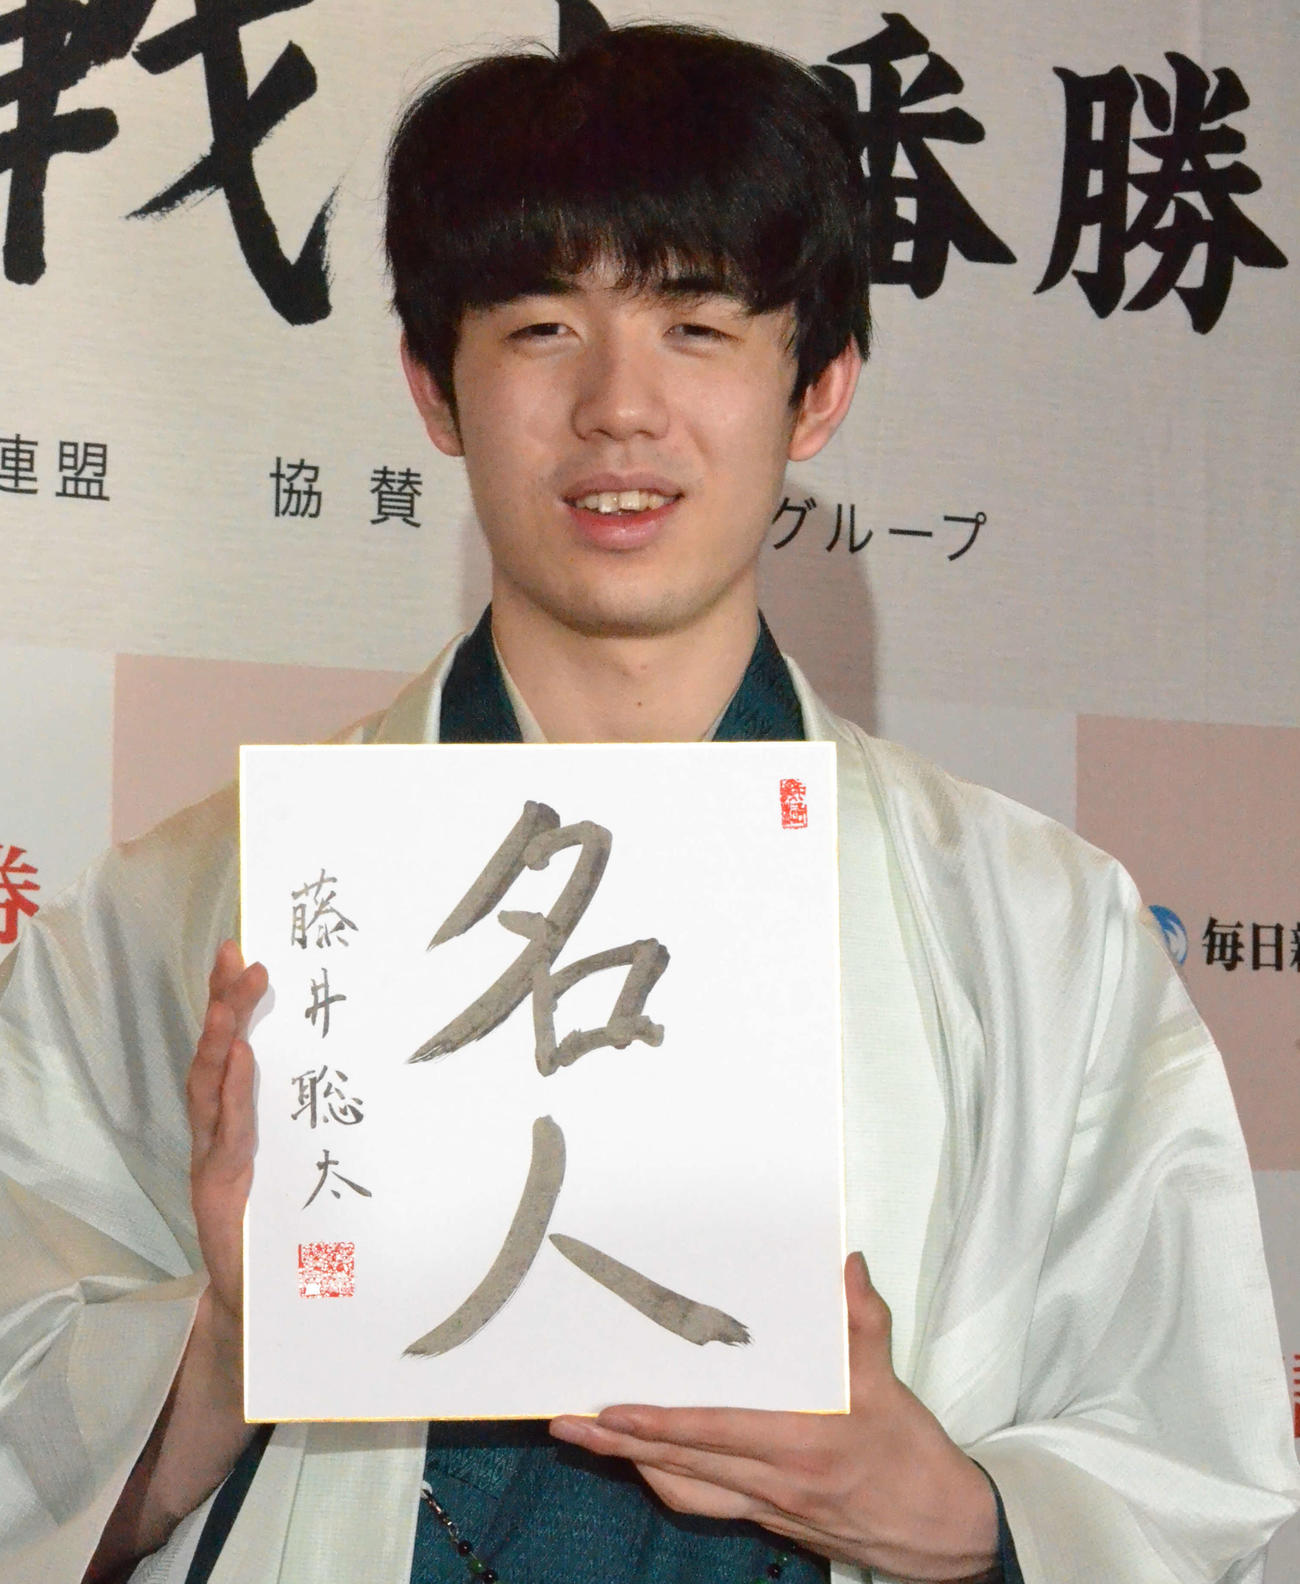 戦 番勝
連盟 協賛 グループ
名人
藤井聡太
毎日新